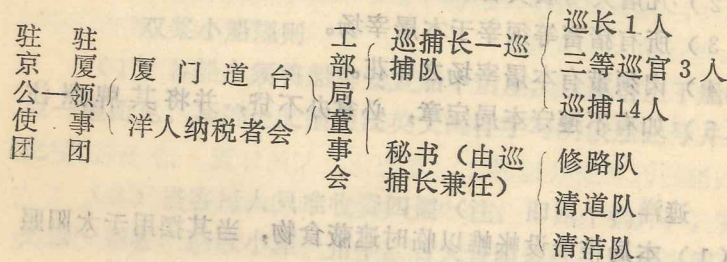 驻京公使团—驻厦领事团
厦门道台
洋人纳税者会
工部局董事会
巡捕长—巡捕队
巡长1人
三等巡官3人
巡捕14人
秘书（由巡捕长兼任）
修路队
清道队
清洁队